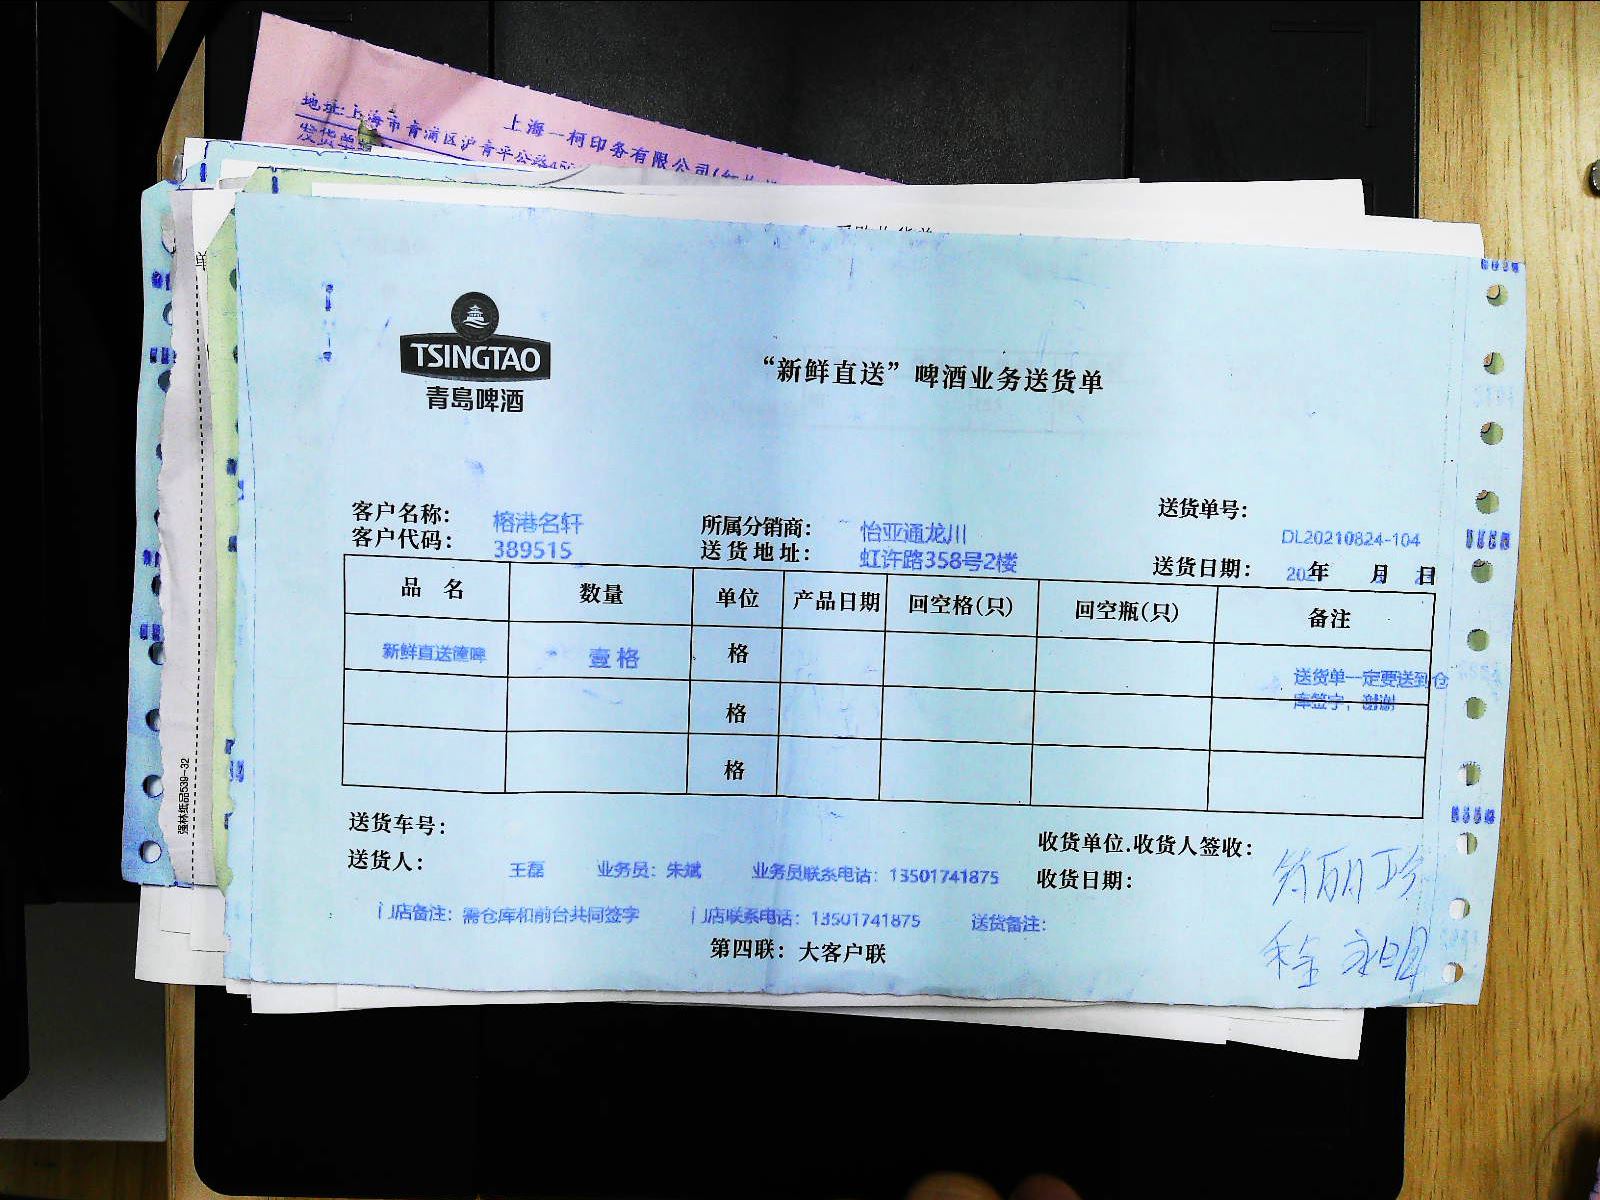 上海一柯印务有限公司
地址:上海市青浦区沪青平公路
发货单
单
强林纸品539-32
TSINGTAO
青岛啤酒
“新鲜直送”啤酒业务送货单
客户名称: 榕港名轩 所属分销商: 怡亚通龙川 送货单号: DL20210824-104
客户代码: 389515 送货地址: 虹许路358号2楼 送货日期: 202 年 月 日
品 名 数量 单位 产品日期 回空格(只) 回空瓶(只) 备注
新鲜直送 壹格 格 送货单一定要送到仓
库签字，谢谢
格
格
送货车号: 收货单位.收货人签收:
送货人: 王磊 业务员: 朱斌 业务员联系电话: 13501741875 收货日期:
门店备注: 需仓库和前台共同签字 门店联系电话: 13501741875 送货备注:
第四联: 大客户联